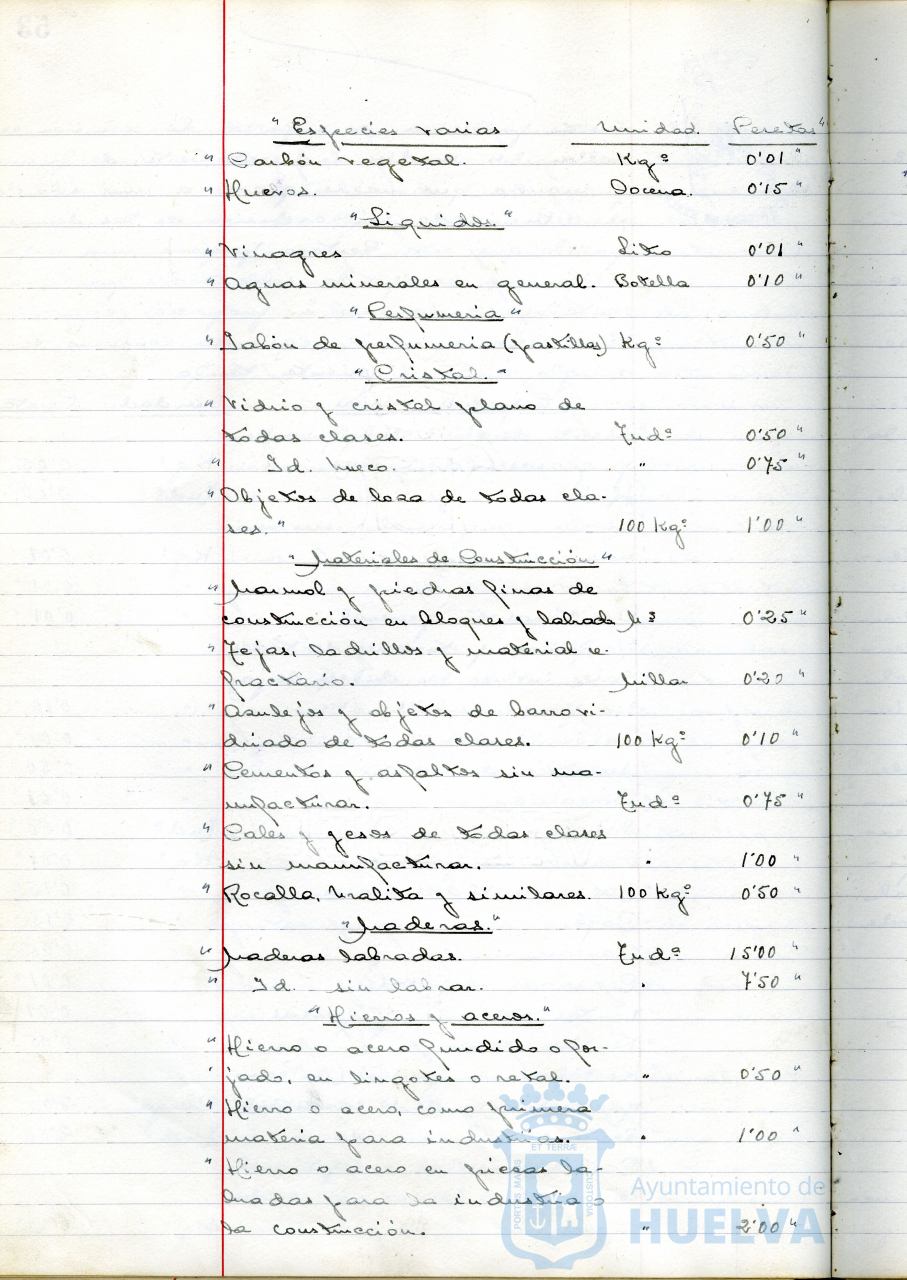 " Especies varias Unidad. Pesetas "
" Carbón vegetal. Kgº 0'01 "
" Huevos. Docena. 0'15 "
" Liquidos. "
" Vinagres Litro 0'01 "
" Aguas minerales en general. Botella 0'10 "
" Perfumeria "
" Jabón de perfumeria (pastillas) Kgº 0'50 "
" Cristal. "
" Vidrio y cristal plano de
todas clases. Tndª 0'50 "
" Id. hueco. " 0'75 "
" Objetos de loza de todas cla-
ses. " 100 Kgº 1'00 "
" Materiales de Construcción "
" Marmol y piedras finas de
construcción en bloques y labrada M³ 0'25 "
" Tejas, ladrillos y material re-
fractario. Millar 0'20 "
" Azulejos y objetos de barro vi-
driado de todas clases. 100 Kgº 0'10 "
" Cementos y asfaltos sin ma-
nufacturar. Tndª 0'75 "
" Cales y yesos de todas clases
sin manufacturar. " 1'00 "
" Rocalla, Uralita y similares. 100 Kgº 0'50 "
" Maderas. "
" Maderas labradas. Tndª 15'00 "
" Id. sin labrar. " 7'50 "
" Hierros y aceros. "
" Hierro o acero fundido o for-
jado, en lingotes o retal. " 0'50 "
" Hierro o acero, como primera
materia para industrias. " 1'00 "
" Hierro o acero en piezas la-
bradas para la industria o
la construcción. " 2'00 "
PORTUS MARIS ET TERRÆ CUSTODIA
Ayuntamiento de
HUELVA